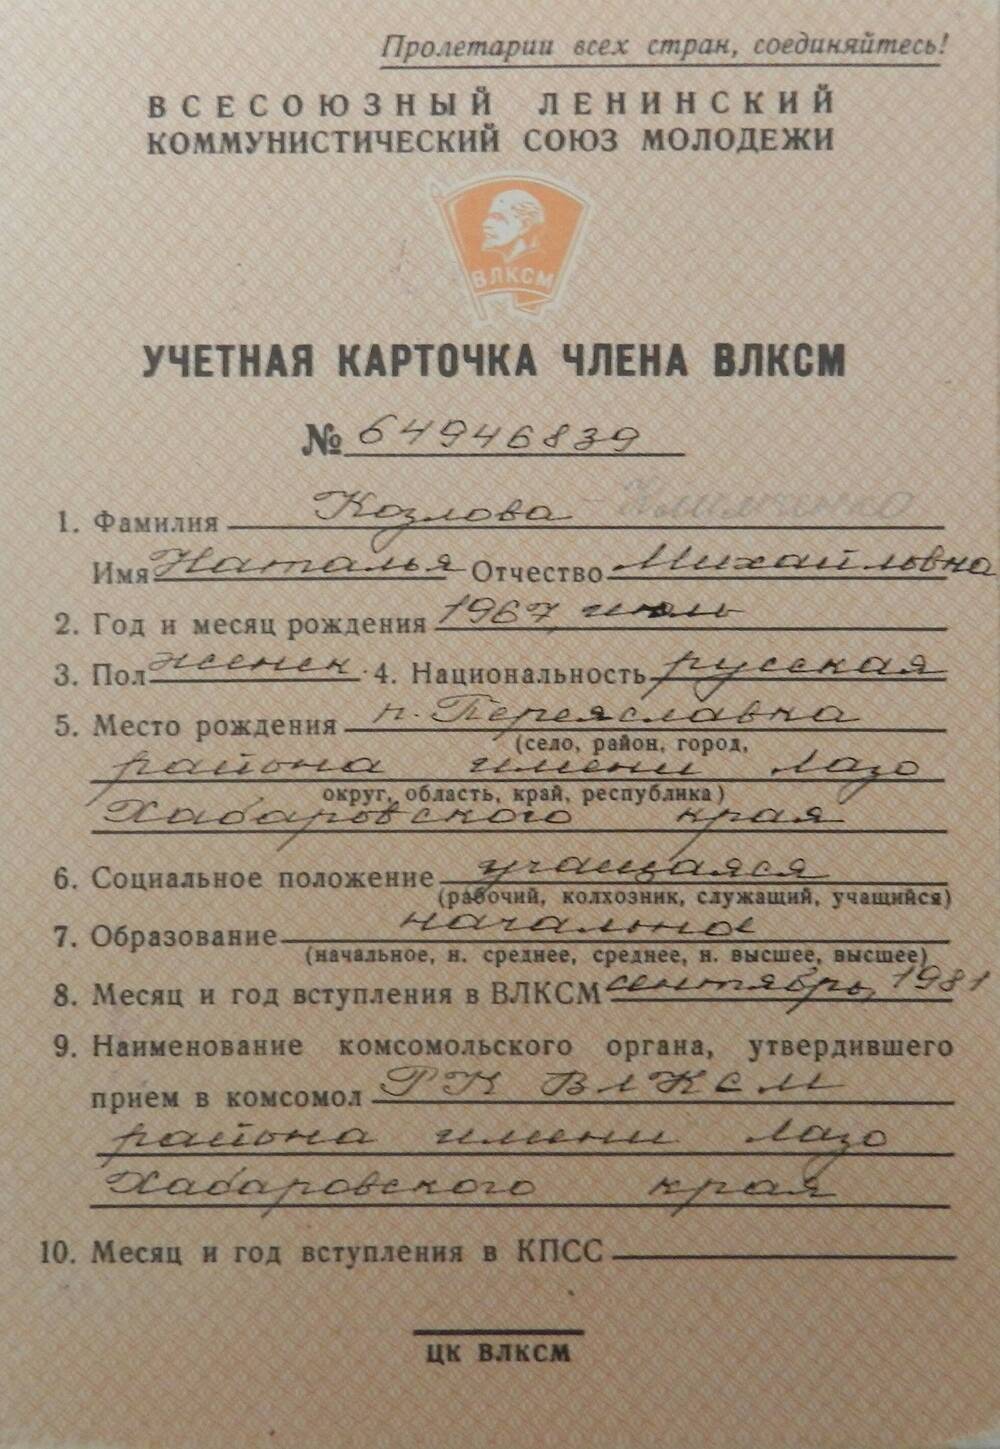 Пролетарии всех стран, соединяйтесь!
ВСЕСОЮЗНЫЙ ЛЕНИНСКИЙ
КОММУНИСТИЧЕСКИЙ СОЮЗ МОЛОДЕЖИ
ВЛКСМ
УЧЕТНАЯ КАРТОЧКА ЧЛЕНА ВЛКСМ
№ 64946839
1. Фамилия Козлова
Имя Наталья Отчество Михайловна
2. Год и месяц рождения 1967, июль
3. Пол женск. 4. Национальность русская
5. Место рождения п. Переяславка
(село, район, город,
района имени Лазо
округ, область, край, республика)
Хабаровского края
6. Социальное положение учащаяся
(рабочий, колхозник, служащий, учащийся)
7. Образование начальное
(начальное, н. среднее, среднее, н. высшее, высшее)
8. Месяц и год вступления в ВЛКСМ сентябрь, 1981
9. Наименование комсомольского органа, утвердившего
прием в комсомол РК ВЛКСМ
района имени Лазо
Хабаровского края
10. Месяц и год вступления в КПСС
ЦК ВЛКСМ